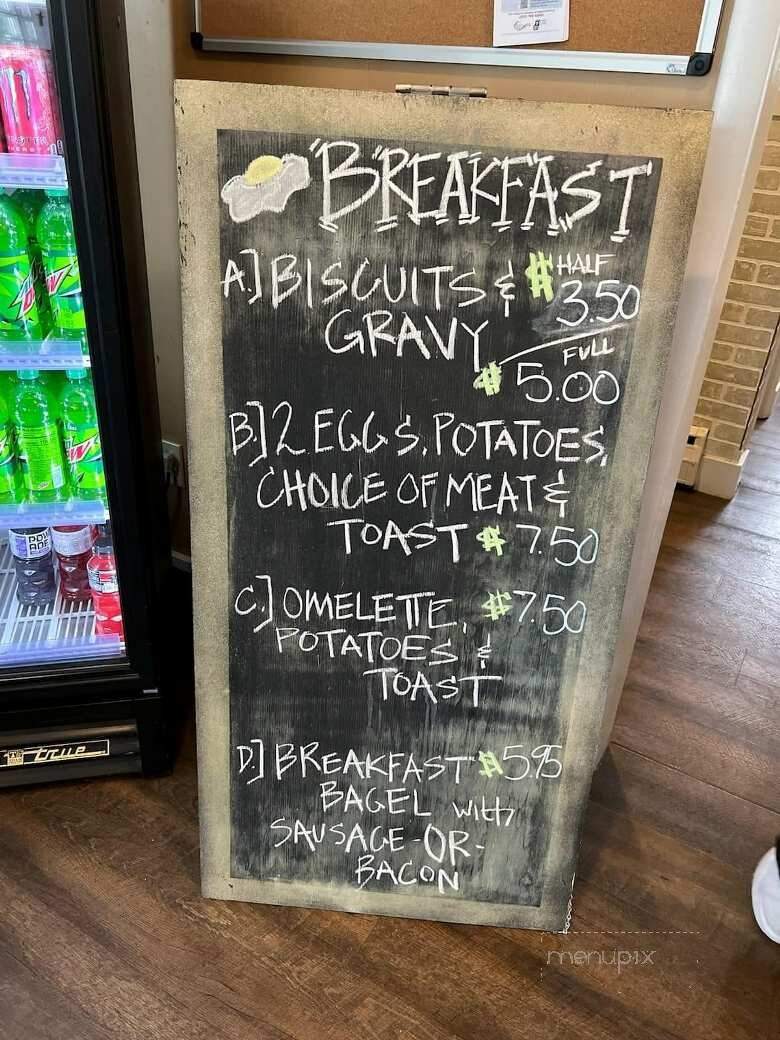 BREAKFAST
A.] BISCUITS & $ HALF 3.50
GRAVY
FULL
$ 5.00
B.] 2 EGGS, POTATOES,
CHOICE OF MEAT &
TOAST $ 7.50
C.] OMELETTE, $7.50
POTATOES &
TOAST
D.] BREAKFAST $5.95
BAGEL with
SAUSAGE -OR-
BACON
true
menupix